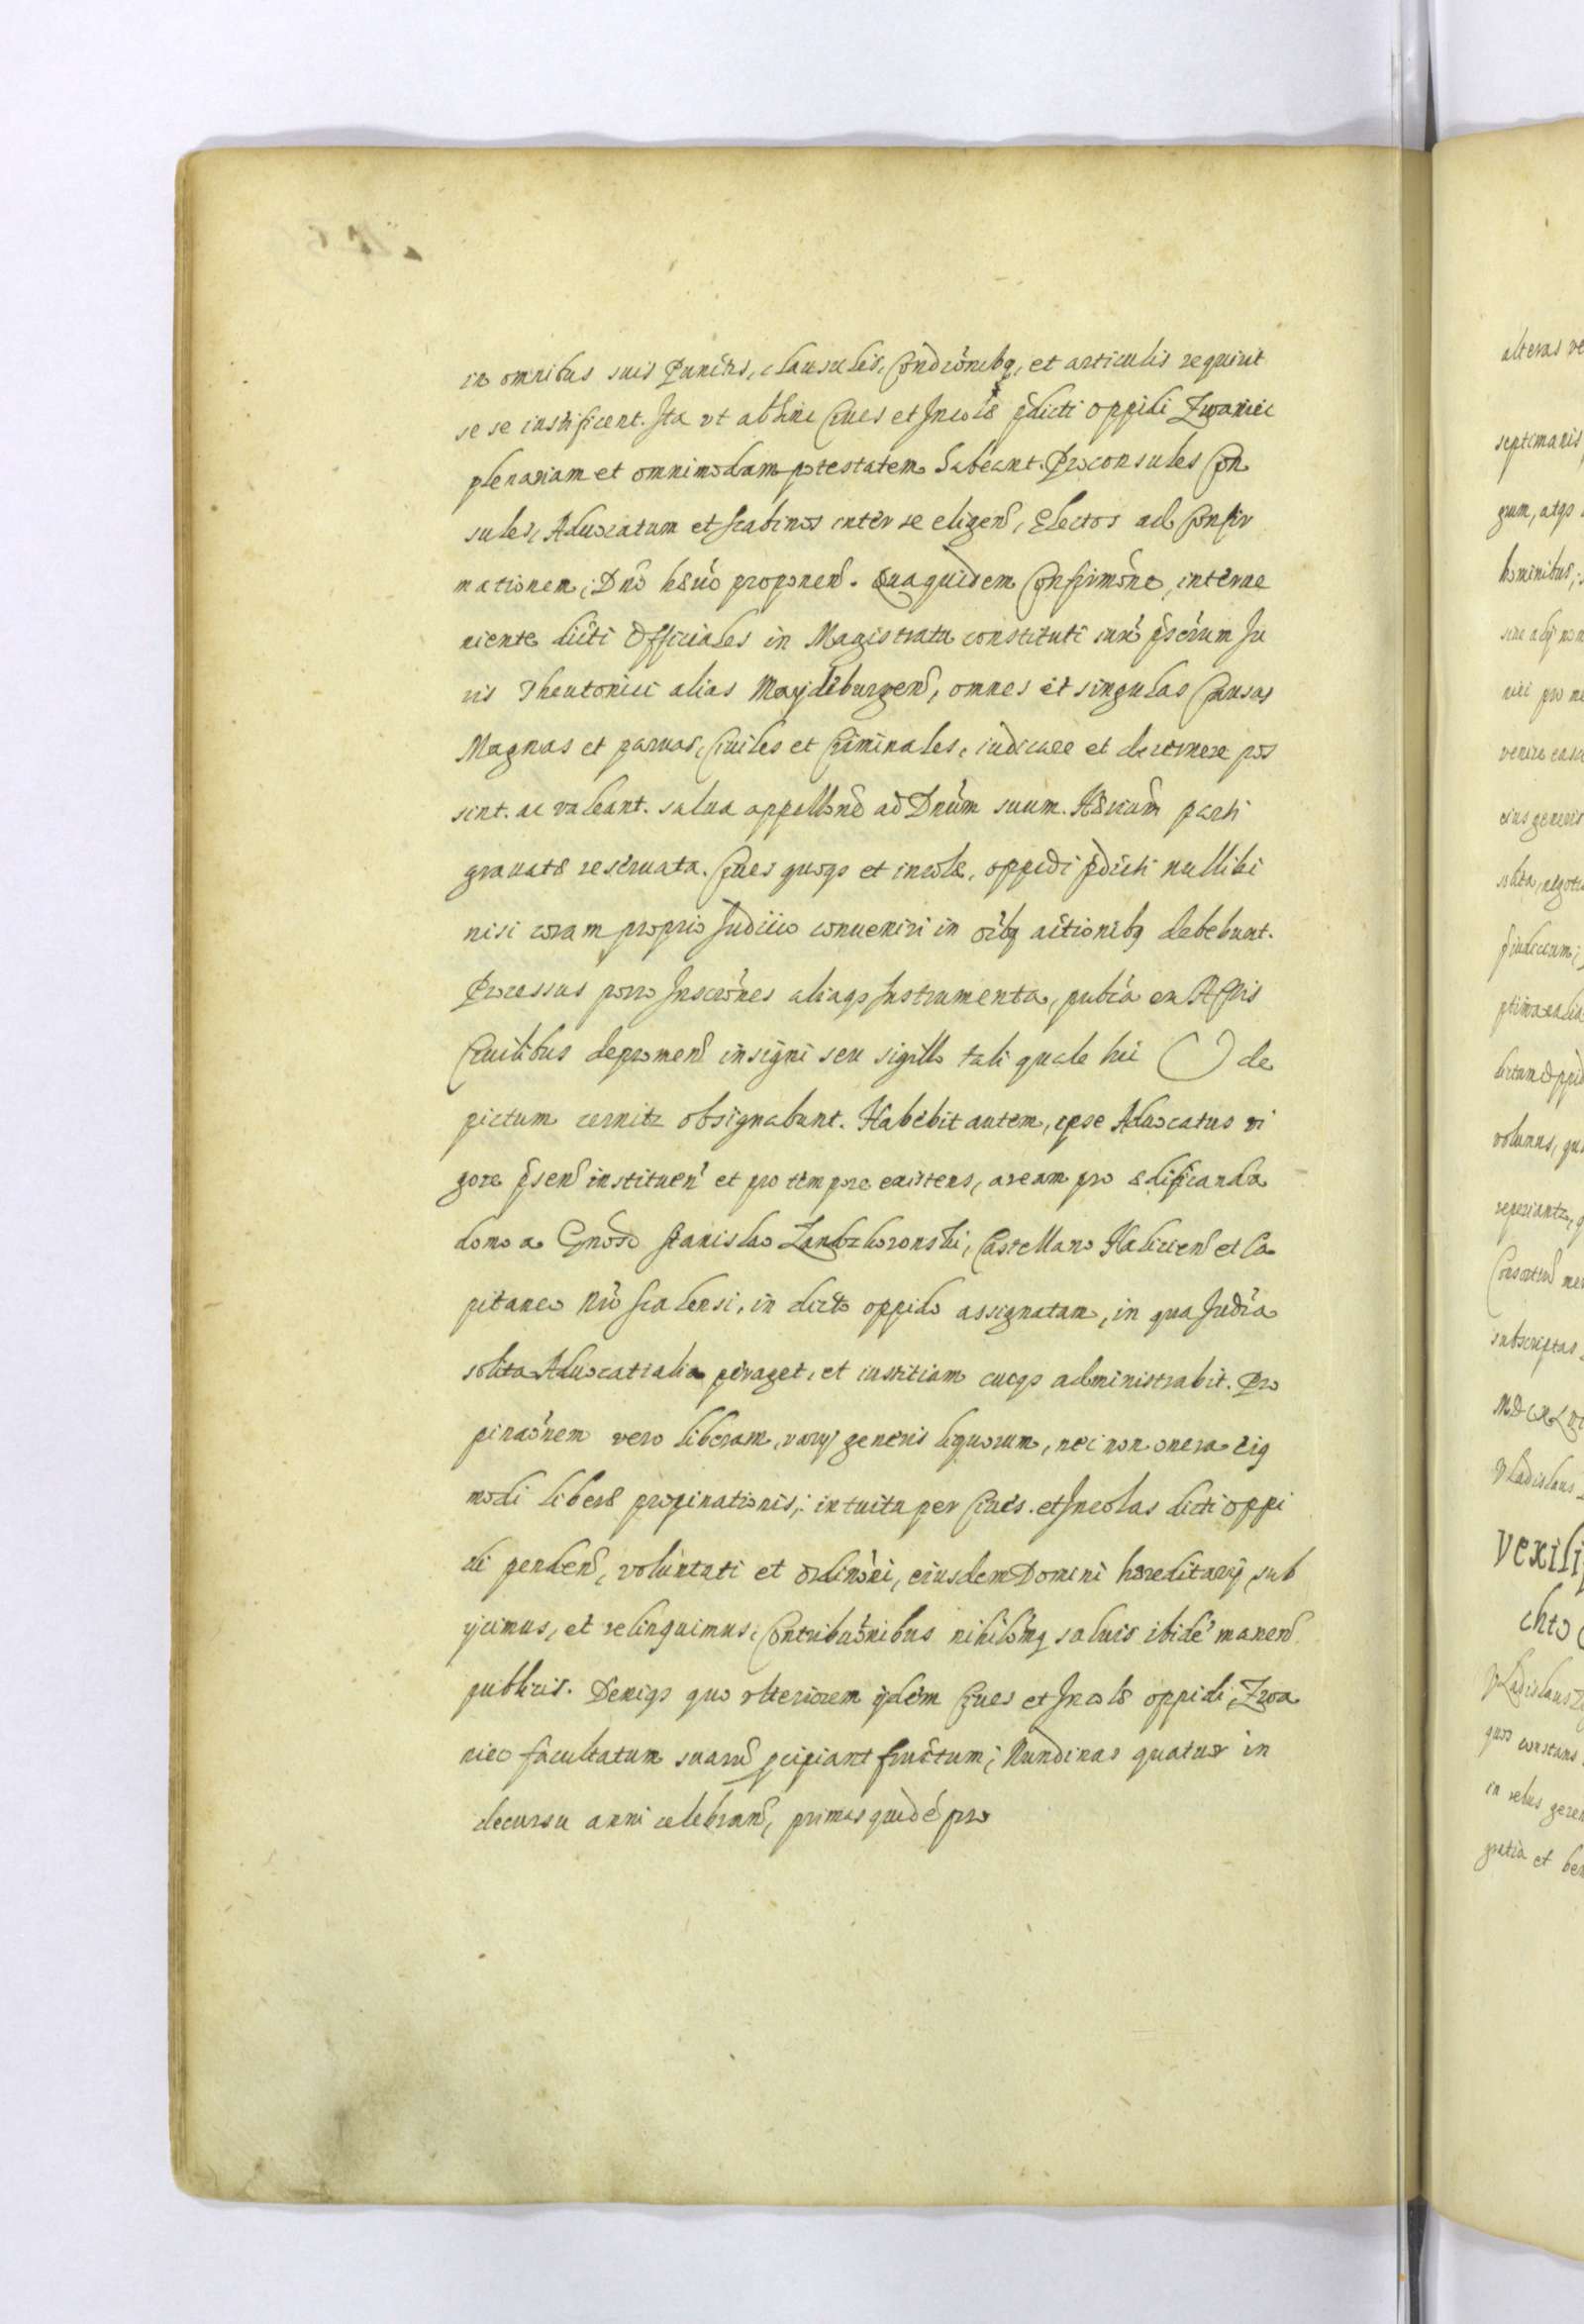 in omnibus suis Punctis, clausulis, Condiōnibq, et articulis requirit
se se iustificent. Ita vt abhinc Ciues et Incolæ p̄dicti oppidi Zwaniec
plenariam et omnimodam potestatem habeant. Proconsules Con
sules, Aduocatum et scabinos inter se eligen̄, Electos ad Confir
mationem, Dnō hæŕō proponen̄. Qua quidem Confirmōne, interue
niente dicti Officiales in Magistratu constituti iux̄ p̄scrum Iu
ris Theutonici alias Maydeburgen̄, omnes et singulas Causas
Magnas et paruas, Ciuiles et Criminales, iudicare et decernere pos
sint. ac valeant. salua appellōne ad Dnum suum. Hærium parti
grauatæ reseruata. Ciues quoqs et incolæ, oppidi p̄dicti nullibi
nisi coram proprio Iudicio conueniri in oībq actionibq debebunt.
Processus porro Inscrōnes aliaqs Instrumenta, publca ex Actis
Ciuilibus depromen̄ insigni seu sigillo tali quale hic de
pictum cernitr obsignabunt. Habebit autem, ipse Aduocatus vi
gore p̄sen̄ instituen̄ et pro tempore existens, aream pro ædificanda
domo a Gnōso Stanislao Landzkoronski, Castellano Halicien̄ et Ca
pitaneo nrō Scalensi, in dicto oppido assignatam, in qua Iudcia
solita Aduocatialia peraget, et iustitiam cuiqs administrabit. Pro
pinaōnem vero liberam, varij generis liquorum, nec non onera eiq
modi liberæ propinationis, intuitu per Ciues. et Incolas dicti oppi
di penden̄, voluntati et ordinōni, eiusdem Domini hæreditarij sub
ijcimus, et relinquimus, Contribuōnibus nihilōmq saluis ibidē manen̄
publicis. Deniqs quo vlteriorem ijdem Ciues et Incolæ oppidi, Zwa
niec facultatum suarū p̄cipiant fructum, Nundinas quatuor in
decursu anni celebran̄, primas quidē pro
alteras
septimanis
gum, atqs
hominibus,
sine
venire
eius generis
solita, negotia
volumus,
reperiantr,
subscriptas
Vladislaus
Vladislaus
quos constans
in rebus
gratia et